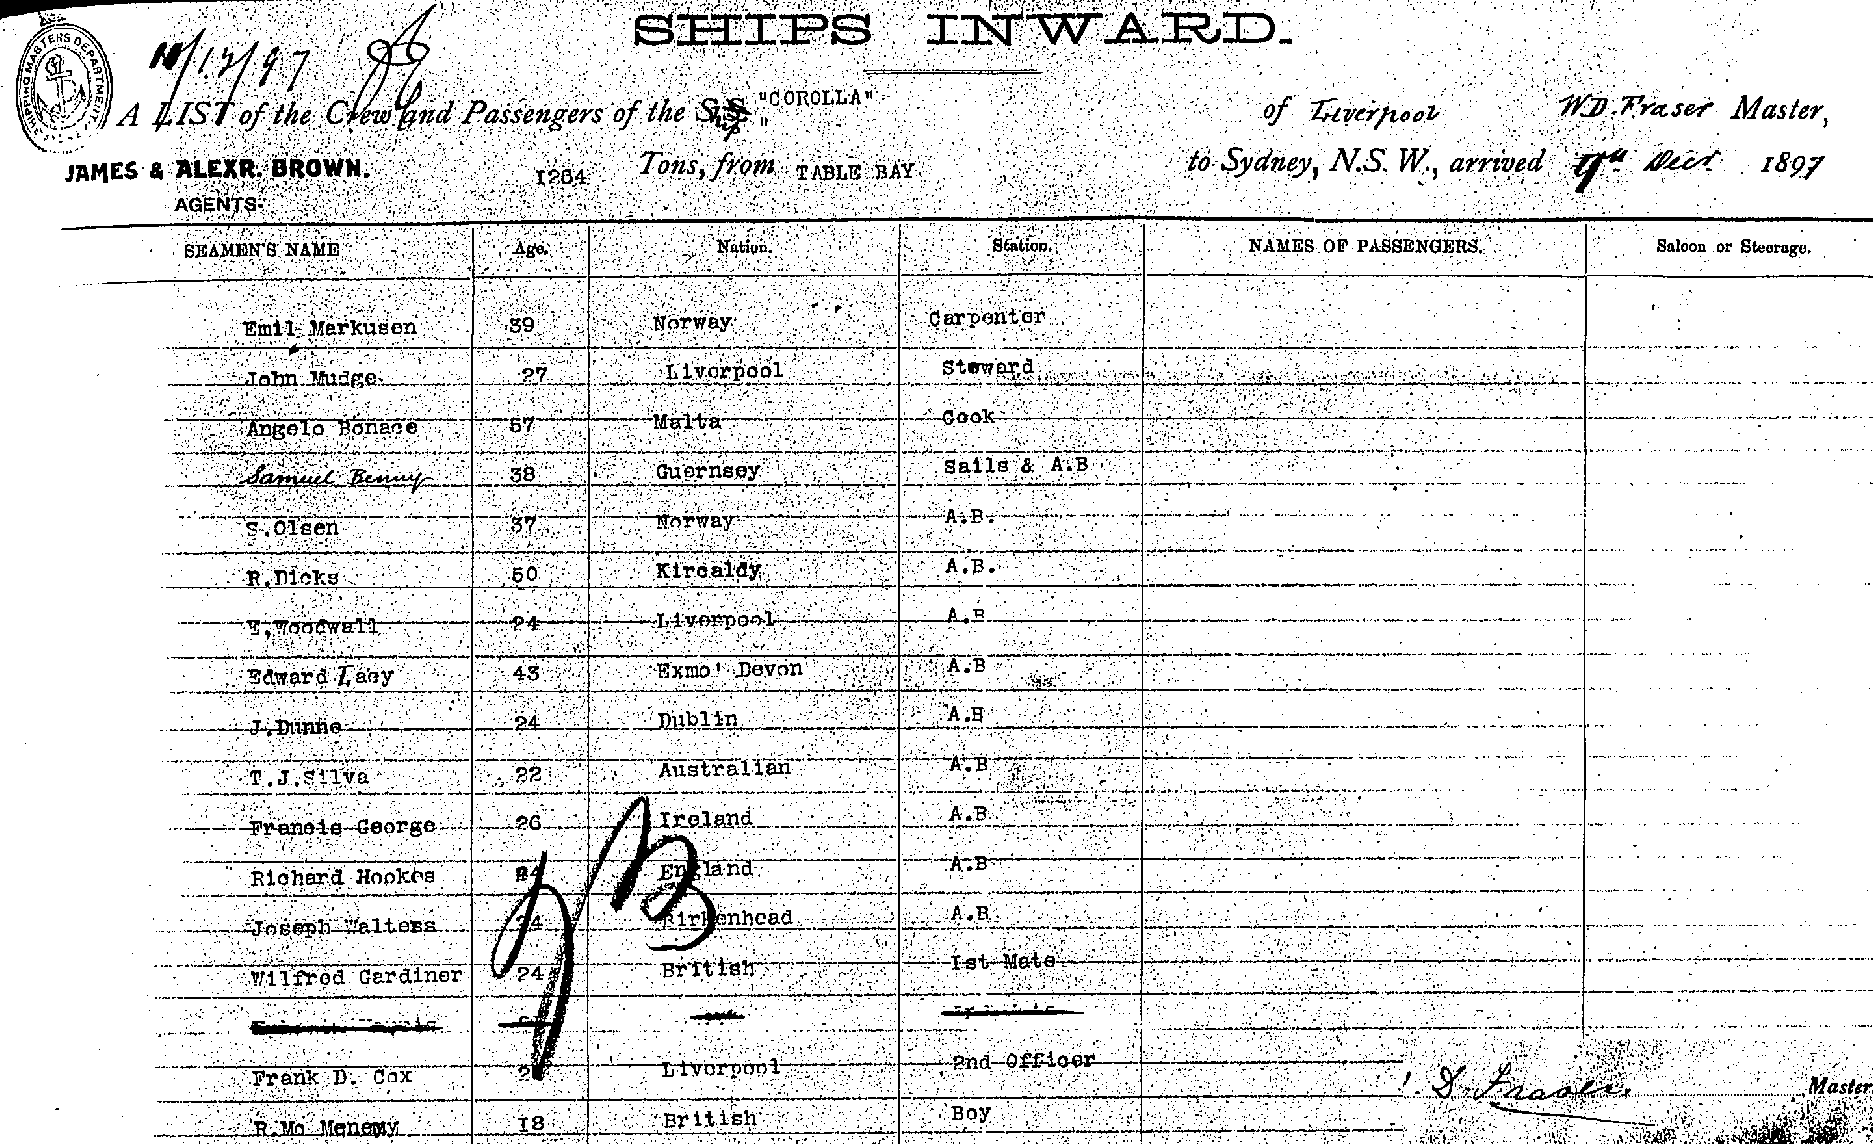 SHIPS INWARD.
SHIPPING MASTERS DEPARTMENT
10/12/97
A LIST of the Crew and Passengers of the Ship "COROLLA" of Liverpool W.D. Fraser Master,
JAMES & ALEXR. BROWN. 1264 Tons, from TABLE BAY to Sydney, N.S.W., arrived 9th Decr 1897
AGENTS.
SEAMEN'S NAME Age. Nation. Station. NAMES OF PASSENGERS. Saloon or Steerage.
Emil Markusen 39 Norway Carpenter
John Mudge 27 Liverpool Steward
Angelo Bonace 57 Malta Cook
Samuel Benny 38 Guernsey Sails & A.B
S.Olsen 37 Norway A.B.
R.Dicks 50 Kircaldy A.B.
E.Woodwall 24 Liverpool A.B
Edward Lacy 43 Exmo' Devon A.B
J.Dunne 24 Dublin A.B
T.J.Silva 22 Australian A.B
Francis George 26 Ireland A.B
Richard Hookes 24 England A.B
Joseph Walters 24 Birkenhead A.B
Wilfred Gardiner 24 British Ist Mate
Frank D. Cox Liverpool 2nd Officer
D. Fraser. Master
R.Mc Menemy I8 British Boy